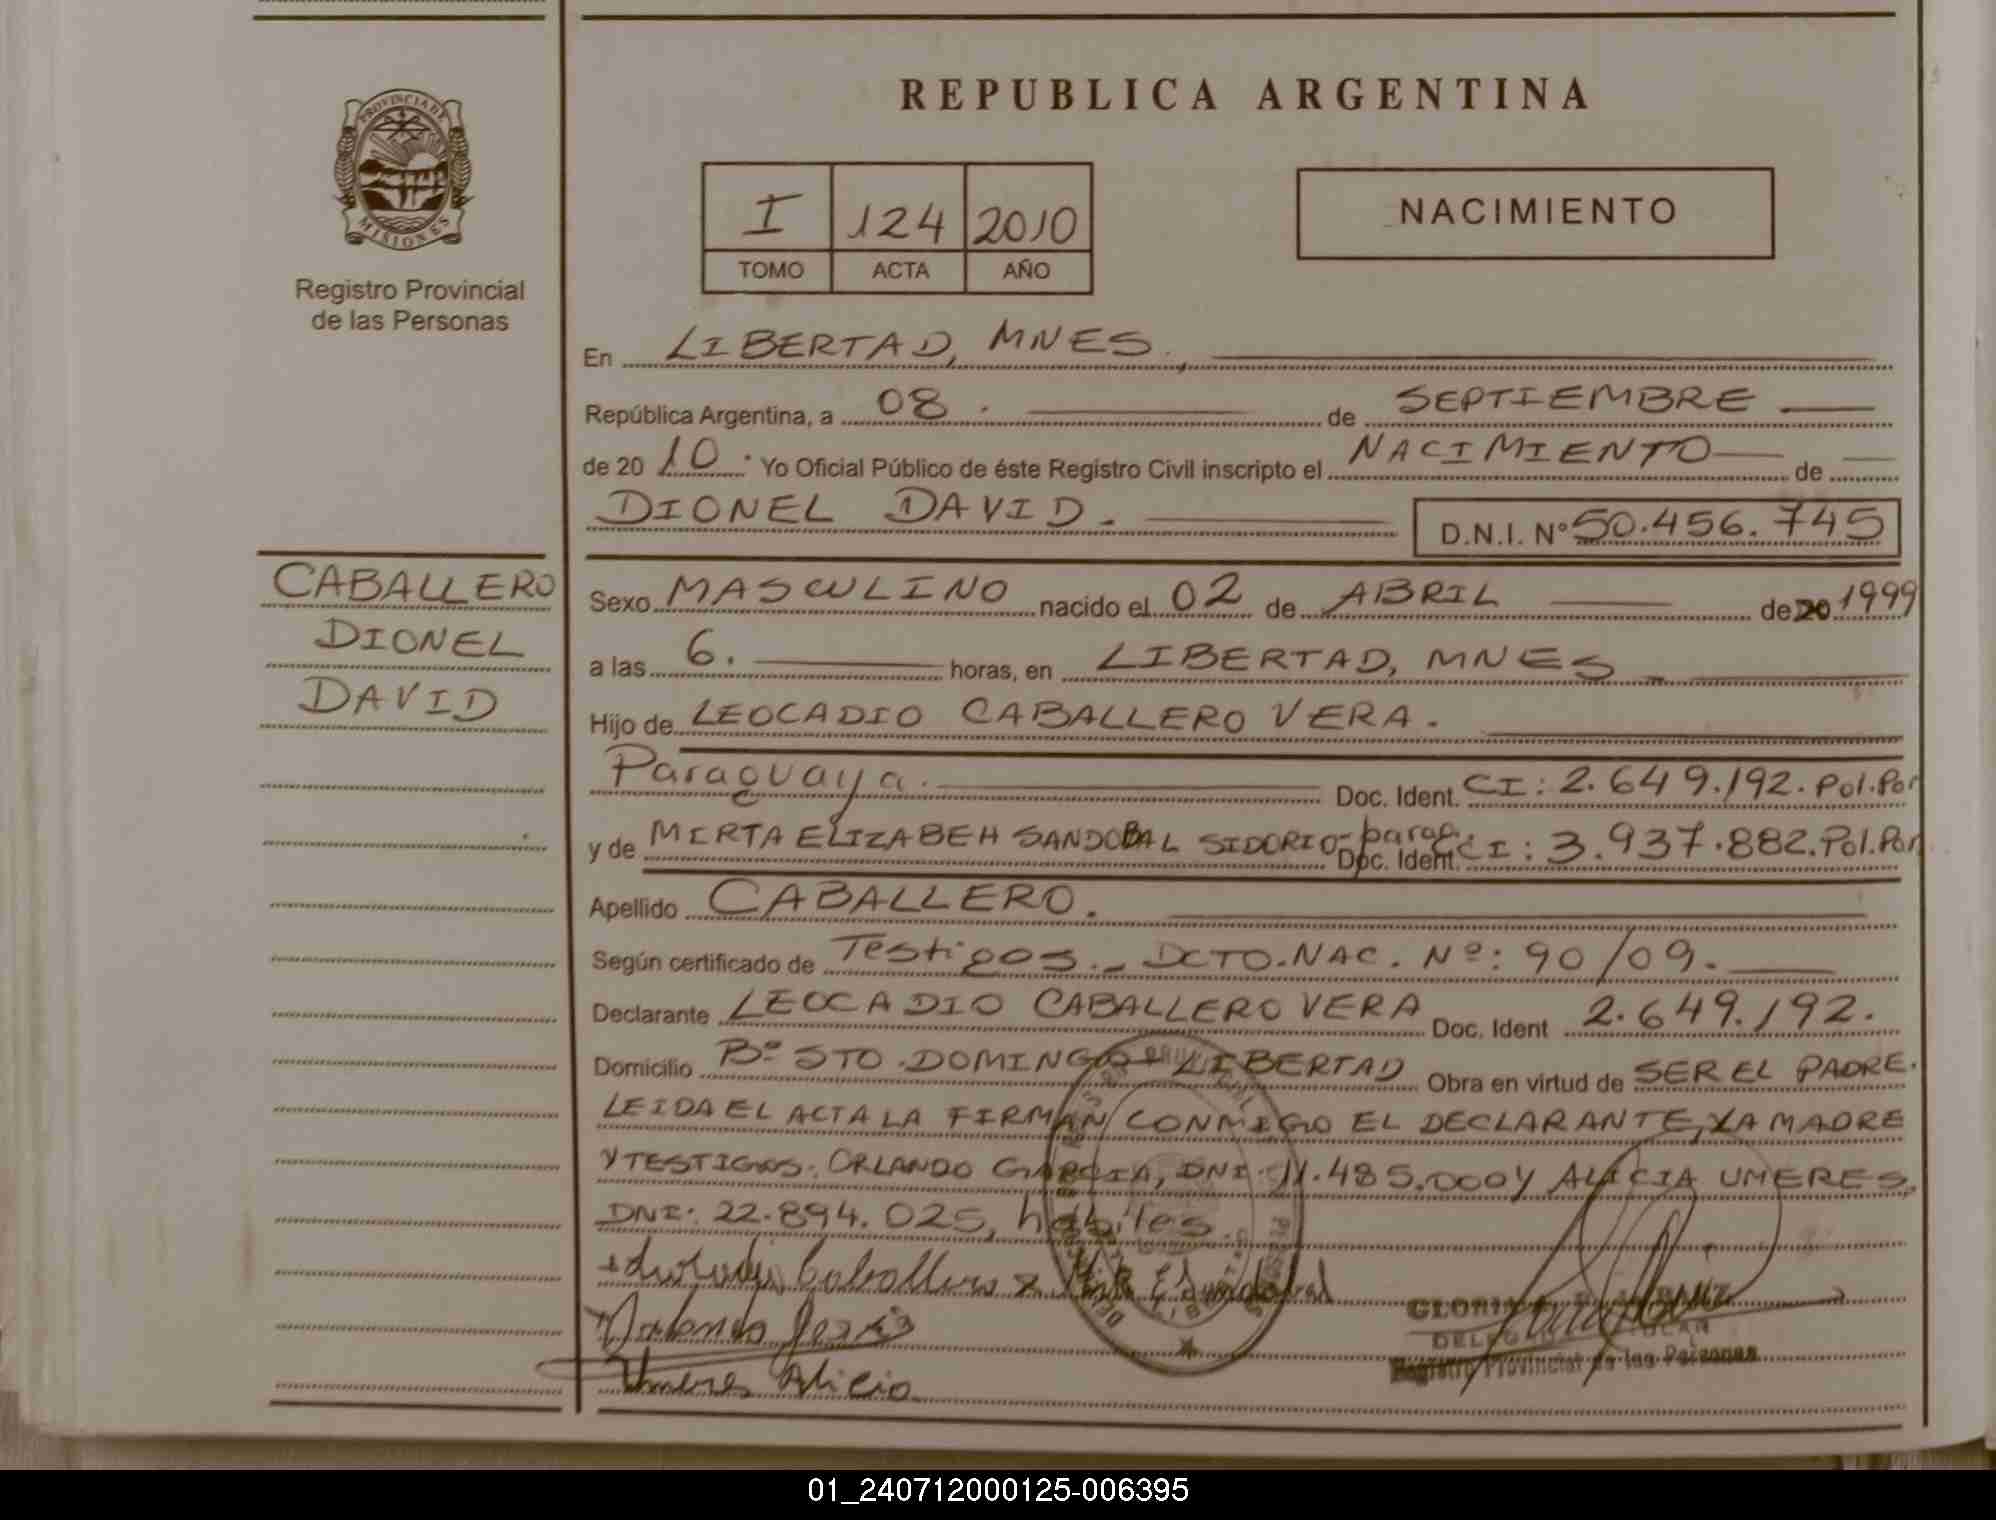 REPUBLICA ARGENTINA
PROVINCIA DE
MISIONES
Registro Provincial
de las Personas
I 124 2010
TOMO ACTA AÑO
NACIMIENTO
En LIBERTAD, MNES.
República Argentina, a 08. de SEPTIEMBRE
de 20 10. Yo Oficial Público de éste Registro Civil inscripto el NACIMIENTO de
DIONEL DAVID.
D.N.I. Nº 50.456.745
CABALLERO
DIONEL
DAVID
Sexo MASCULINO nacido el 02 de ABRIL de 20 1999
a las 6. horas, en LIBERTAD, MNES
Hijo de LEOCADIO CABALLERO VERA.
Paraguaya. Doc. Ident. CI: 2.649.192. Pol.Par
y de MIRTA ELIZABEH SANDOBAL SIDORIO- parag. Doc. Ident. CI: 3.937.882. Pol.Par
Apellido CABALLERO.
Según certificado de Testigos._ DCTO.NAC. Nº: 90/09.
Declarante LEOCADIO CABALLERO VERA Doc. Ident 2.649.192.
Domicilio Bº STO.DOMINGO- LIBERTAD Obra en virtud de SER EL PADRE.
LEIDA EL ACTA LA FIRMAN CONMIGO EL DECLARANTE, LA MADRE
Y TESTIGOS: ORLANDO GARCIA, DNI: 11.485.000 Y ALICIA UMERES,
DNI: 22.894.025, hábiles.
Caballero
Umeres Alicia
Registro Provincial de las Personas
01_240712000125-006395